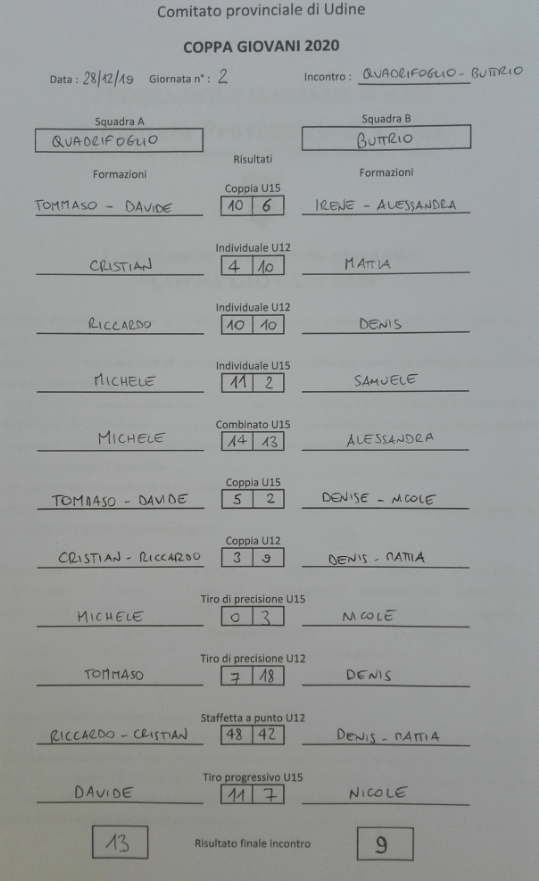 Comitato provinciale di Udine
COPPA GIOVANI 2020
Data : 28/12/19 Giornata n° : 2 Incontro : QUADRIFOGLIO - BUTTRIO
Squadra A Squadra B
QUADRIFOGLIO BUTTRIO
Risultati
Formazioni Formazioni
Coppia U15
TOMMASO - DAVIDE 10 6 IRENE - ALESSANDRA
Individuale U12
CRISTIAN 4 10 MATTIA
Individuale U12
RICCARDO 10 10 DENIS
Individuale U15
MICHELE 11 2 SAMUELE
Combinato U15
MICHELE 14 13 ALESSANDRA
Coppia U15
TOMMASO - DAVIDE 5 2 DENISE - NICOLE
Coppia U12
CRISTIAN - RICCARDO 3 9 DENIS - MATTIA
Tiro di precisione U15
MICHELE 0 3 NICOLE
Tiro di precisione U12
TOMMASO 7 18 DENIS
Staffetta a punto U12
RICCARDO - CRISTIAN 48 42 DENIS - MATTIA
Tiro progressivo U15
DAVIDE 11 7 NICOLE
13 Risultato finale incontro 9